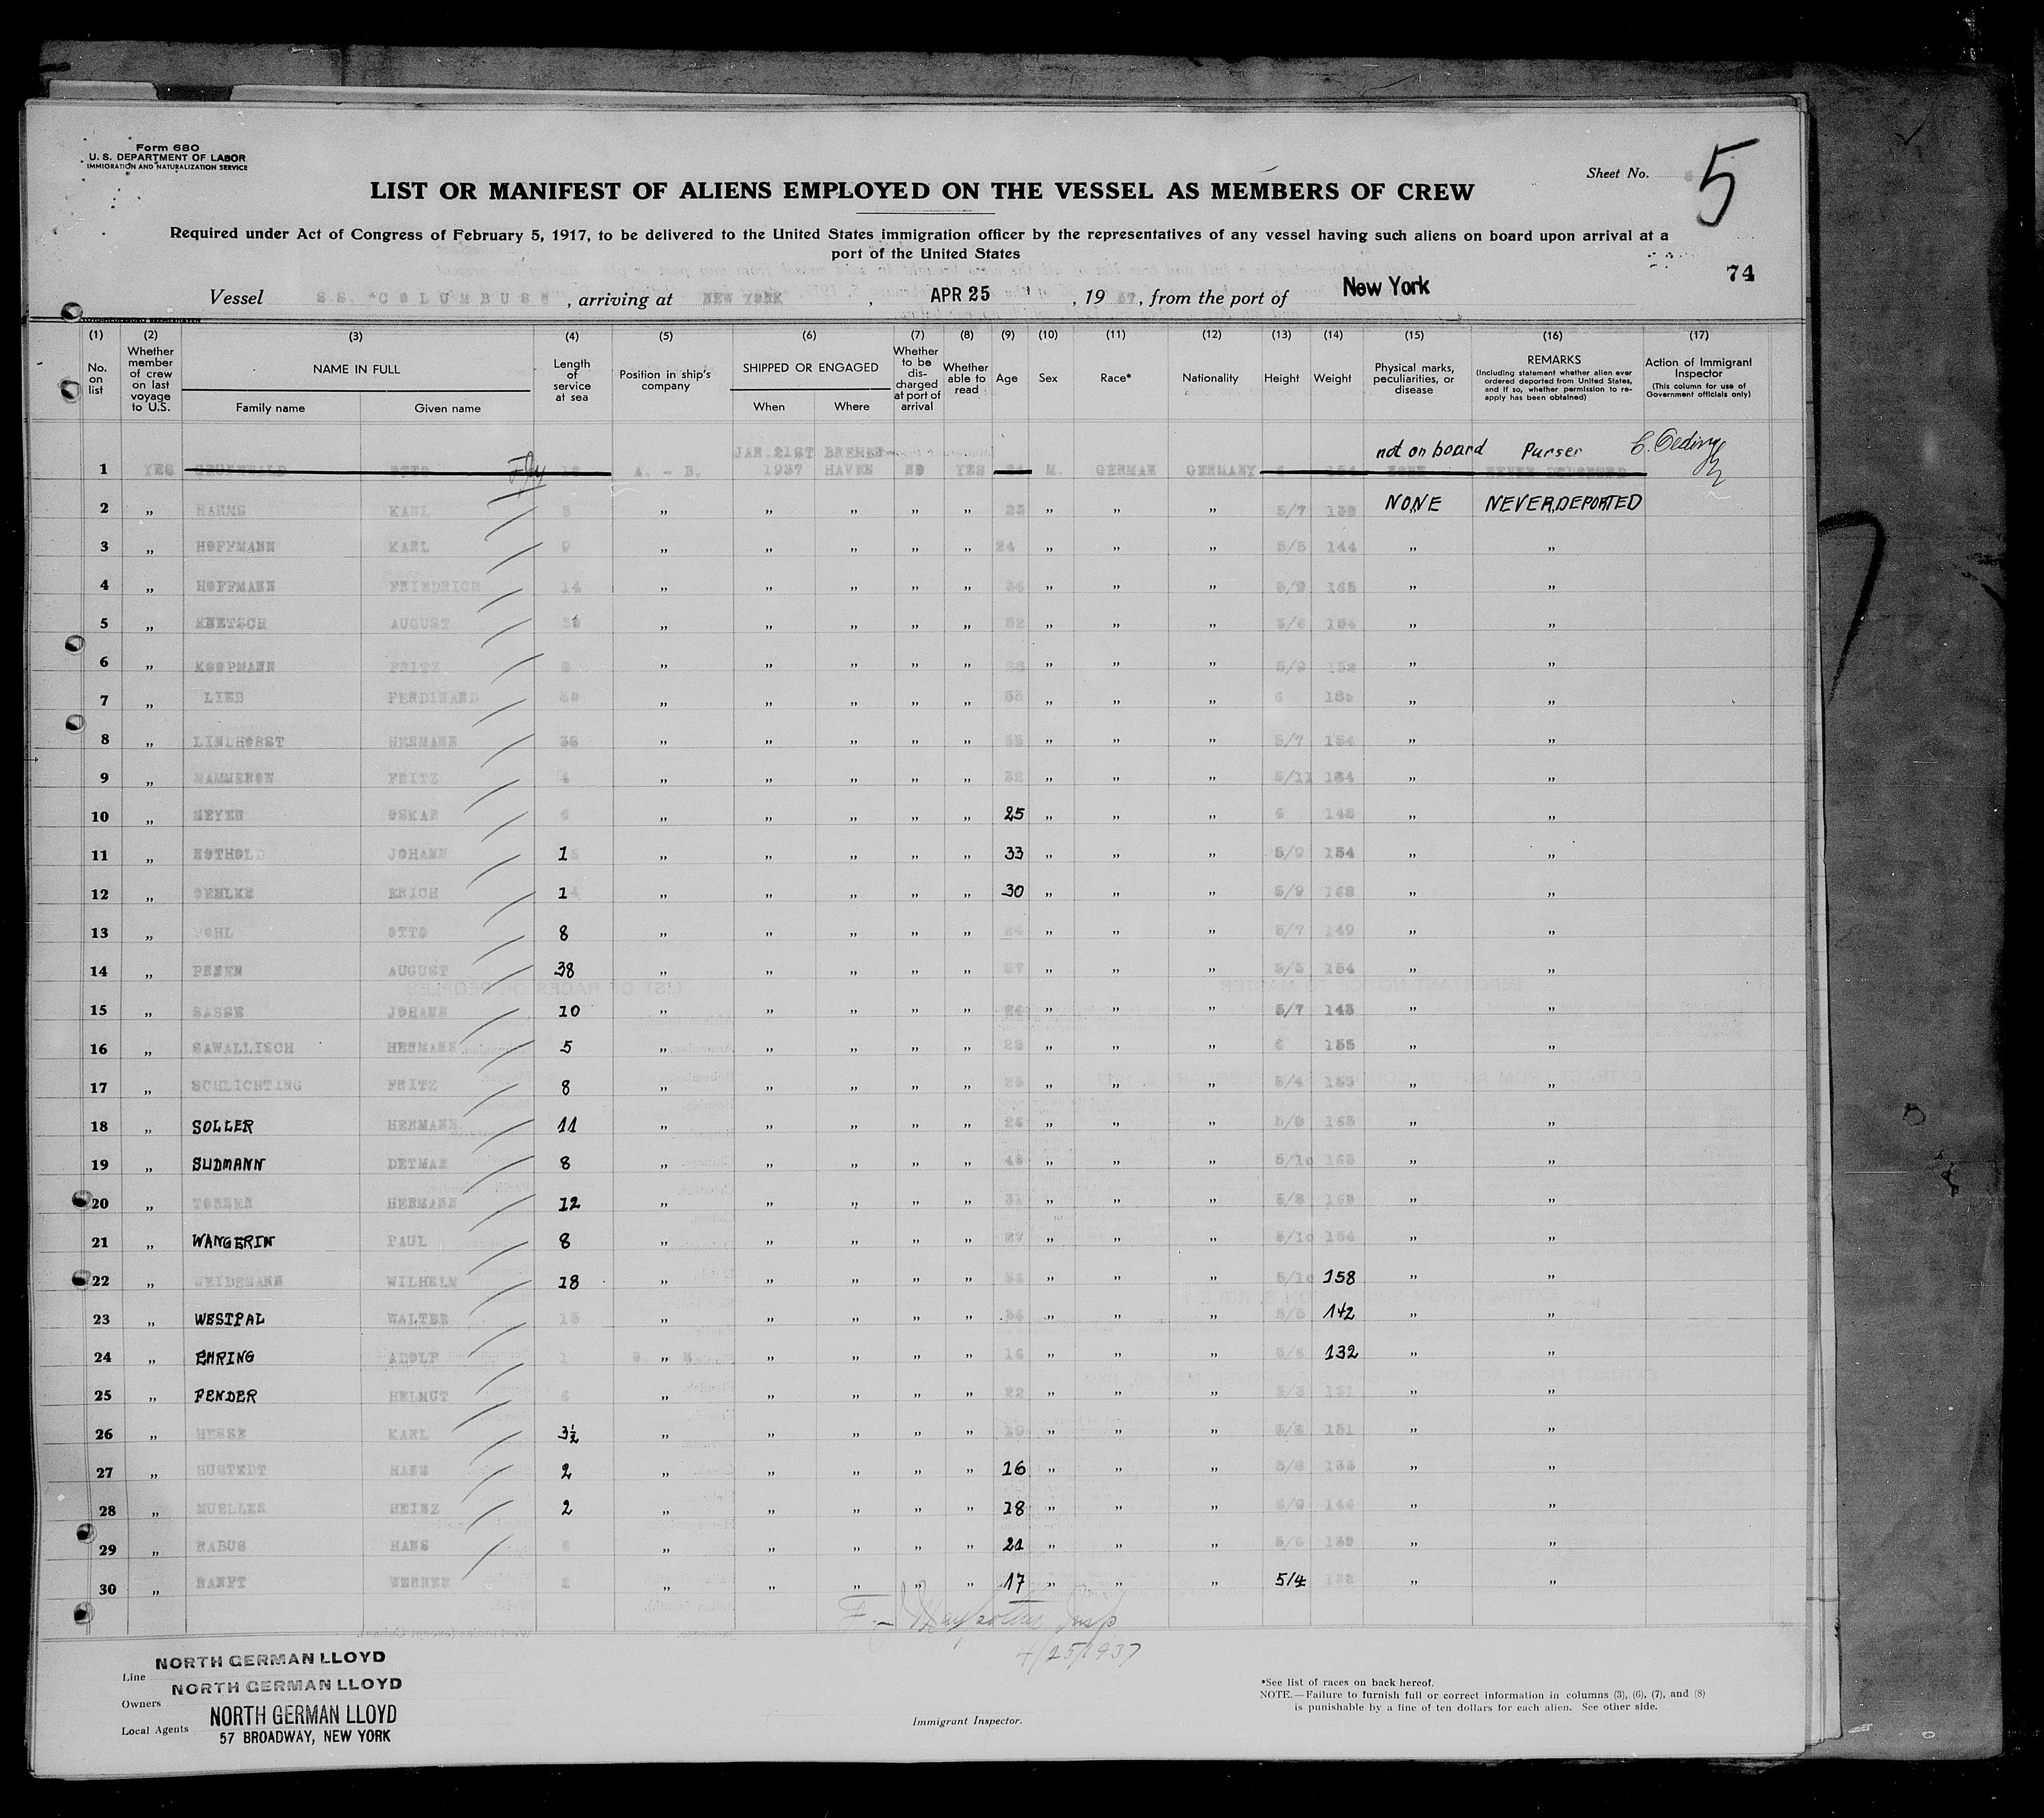 Form 680
U. S. DEPARTMENT OF LABOR
IMMIGRATION AND NATURALIZATION SERVICE
Sheet No. 5
LIST OR MANIFEST OF ALIENS EMPLOYED ON THE VESSEL AS MEMBERS OF CREW
Required under Act of Congress of February 5, 1917, to be delivered to the United States immigration officer by the representatives of any vessel having such aliens on board upon arrival at a
port of the United States
74
Vessel S.S. "COLUMBUS" , arriving at NEW YORK , APR 25 , 19 37, from the port of New York
(1) (2) (3) (4) (5) (6) (7) (8) (9) (10) (11) (12) (13) (14) (15) (16) (17)
No. on list
Whether member of crew on last voyage to U.S.
NAME IN FULL
Family name Given name
Length of service at sea
Position in ship's company
SHIPPED OR ENGAGED
When Where
Whether to be discharged at port of arrival
Whether able to read
Age Sex Race* Nationality Height Weight
Physical marks, peculiarities, or disease
REMARKS
(Including statement whether alien ever ordered deported from United States, and if so, whether permission to reapply has been obtained)
Action of Immigrant Inspector
(This column for use of Government officials only)
JAN. 21ST BREMEN not on board Purser C. Oeding
1 YES OTTO A. - B. 1937 HAVEN NO YES M. GERMAN GERMANY 6 154 NONE NEVER DEPORTED
2 " HARMS KARL 5 " " " " " 23 " " " 5/7 NONE NEVER DEPORTED
3 " HOFFMANN KARL 9 " " " " " 24 " " " 5/5 144 " "
4 " HOFFMANN FRIEDRICH 14 " " " " " " " " 5/9 165 " "
5 " KNETSCH AUGUST " " " " " 52 " " " 5/6 154 " "
6 " KOOPMANN FRITZ " " " " " " " " 5/9 " "
7 " LIEB FERDINAND " " " " " " " " 6 " "
8 " LINDHORST HERMANN 38 " " " " " 55 " " " 5/7 154 " "
9 " MAMMEROW FRITZ 4 " " " " " " " " 5/11 184 " "
10 " MEYER OSKAR 6 " " " " " 25 " " " 6 " "
11 " NOTHOLD JOHANN 1 " " " " " 33 " " " 5/9 154 " "
12 " OEHLKE ERICH 1 " " " " " 30 " " " 5/9 168 " "
13 " POHL OTTO 8 " " " " " 24 " " " 5/7 149 " "
14 " AUGUST 38 " " " " " 57 " " " 5/5 154 " "
15 " SASSE JOHANN 10 " " " " " " " " 5/7 143 " "
16 " SAWALLISCH HERMANN 5 " " " " " " " " 6 155 " "
17 " SCHLICHTING FRITZ 8 " " " " " 25 " " " 5/4 " "
18 " SOLLER HERMANN 11 " " " " " 26 " " " 5/8 165 " "
19 " SUDMANN DETMAR 8 " " " " " " " " 5/10 165 " "
20 " HERMANN 12 " " " " " 31 " " " 5/8 169 " "
21 " WANGERIN PAUL 8 " " " " " " " " 5/10 154 " "
22 " WEIDEMANN WILHELM 18 " " " " " " " " 5/10 158 " "
23 " WESTPAL WALTER 15 " " " " " 36 " " " 142 " "
24 " EHRING ADOLF 1 " " " " " 16 " " " 5/6 132 " "
25 " PENDER HELMUT 6 " " " " " 22 " " " 5/5 " "
26 " HESSE KARL 3½ " " " " " 19 " " " 151 " "
27 " HUSTEDT HANS 2 " " " " " 16 " " " 5/8 " "
28 " MUELLER HEINZ 2 " " " " " 18 " " " " "
29 " RABUS HANS " " " " " 21 " " " " "
30 " WERNER 2 " " " " " 17 " " " 5/4 " "
4/25/1937
Line NORTH GERMAN LLOYD
Owners NORTH GERMAN LLOYD
Local Agents NORTH GERMAN LLOYD
57 BROADWAY, NEW YORK
Immigrant Inspector.
*See list of races on back hereof.
NOTE.—Failure to furnish full or correct information in columns (3), (6), (7), and (8)
is punishable by a fine of ten dollars for each alien. See other side.